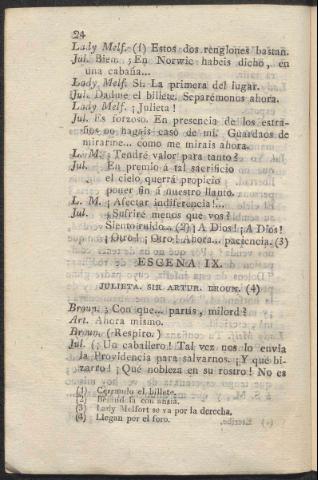 24
Lady Melf. (1) Estos dos renglones bastan.
Jul. Bien. ¿En Norwic habeis dicho, en
una cabaña...
Lady Melf. Sí. La primera del lugar.
Jul. Dadme el billete. Separémonos ahora.
Lady Melf. ¡Julieta!
Jul. Es forzoso. En presencia de los estra-
ños no hagais caso de mí. Guardaos de
mirarme... como me mirais ahora.
L. M. ¿Tendré valor para tanto?
Jul. En premio á tal sacrificio
el cielo querrá propicio
poner fin á nuestro llanto.
L. M. ¡Afectar indiferencia!...
Jul. ¿Sufriré menos que vos?
Siento ruido... (2) ¡A Dios! ¡A Dios!
¡Otro! ¡Otro! Ahora... paciencia. (3)
ESCENA IX.
JULIETA. SIR ARTUR. BROUN. (4)
Broun. ¿Con que... partis, milord?
Art. Ahora mismo.
Broun. (Respiro.)
Jul. (¡Un caballero! Tal vez nos lo envia
la Providencia para salvarnos. ¡Y qué bi-
zarro! ¡Qué nobleza en su rostro! No es
(1) Cerrando el billete.
(2) Besando la con ansia.
(3) Lady Melfort se va por la derecha.
(4) Llegan por el foro.